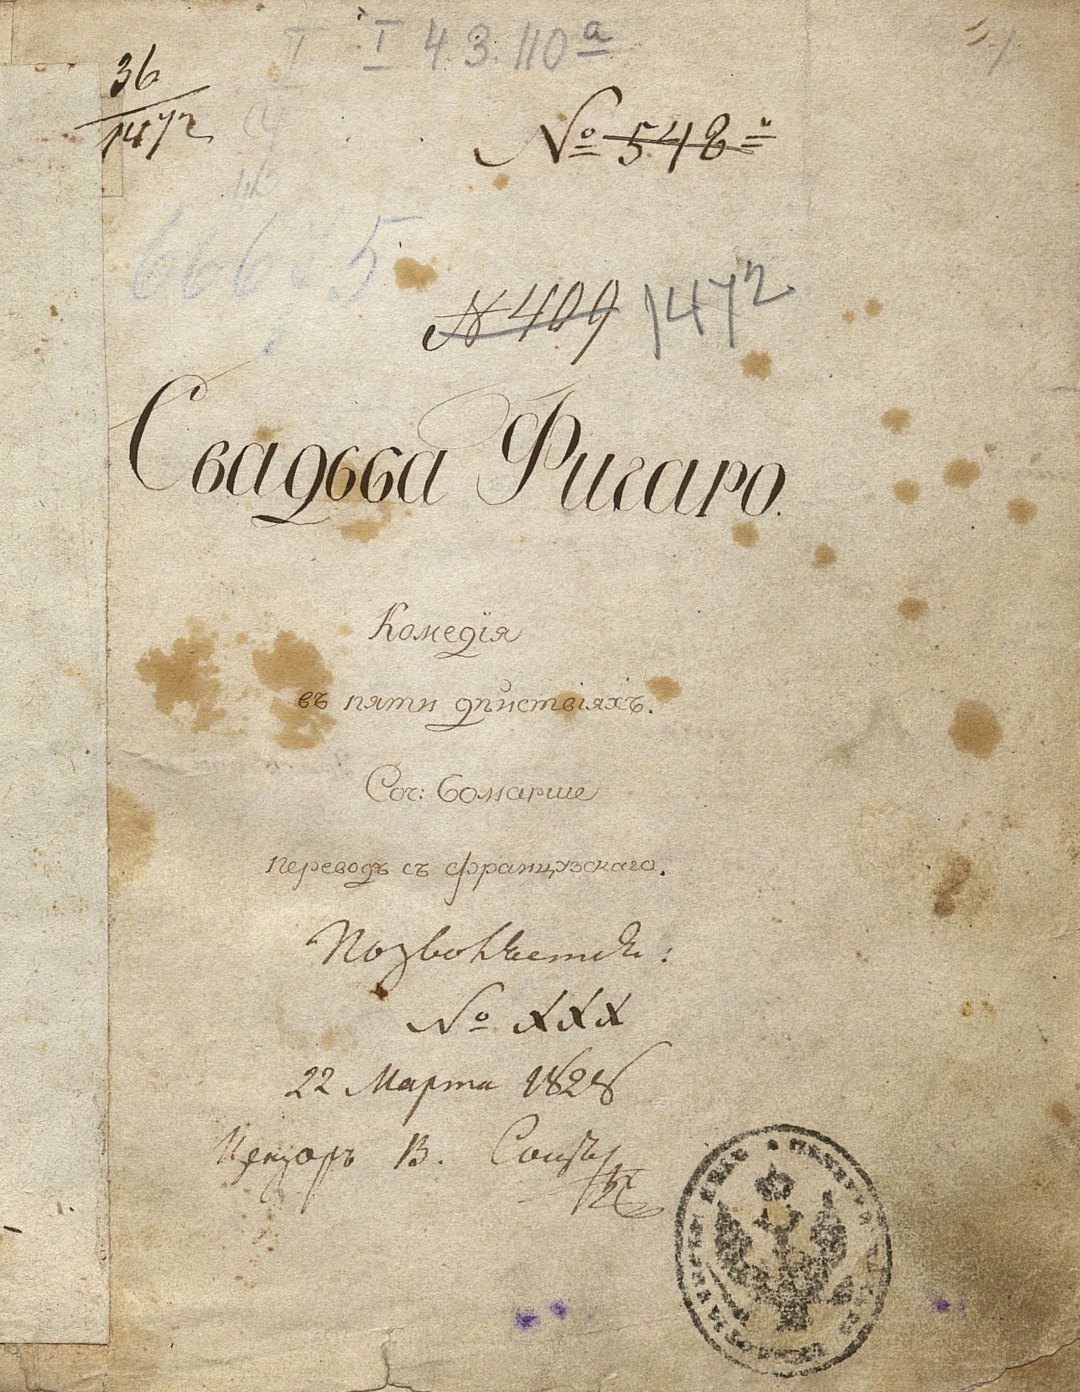 I 4.3.110а
36
1472
№ 548
66675
№ 409 1472
Свадьба Фигаро.
Комедія
въ пяти дѣйствіяхъ.
Соч: Бомарше
переводъ съ французскаго.
Позволяется:
№ XXX
22 Марта 1828
Цензоръ В.